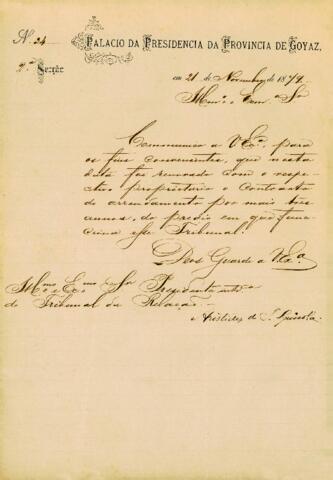 N. 24 PALACIO DA PRESIDENCIA DA PROVINCIA DE GOYAZ,
2.ª Secção
em 21 de Novembro de 1879.
Illm.º e Exm.º Sr.
Communico a V. Ex.ª, para
os fins convenientes, que nesta
data foi renovado com o respe-
ctivo proprietario o contracto
de arrendamento por mais tres
annos, do predio em que func-
ciona esse Tribunal.
Deos Guarde a V. Ex.ª
Illm.º e Exm.º Sr. Presidente
do Tribunal da Relação.
Aristides de S. Spinola.